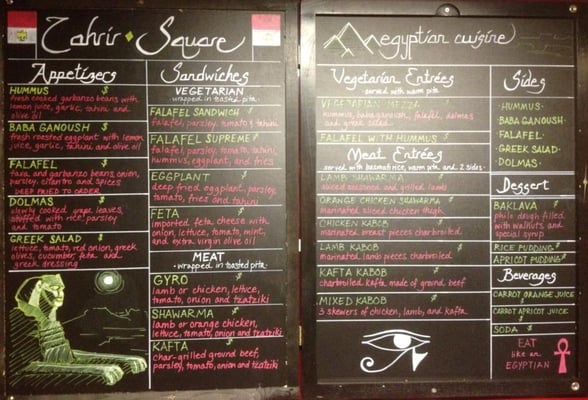 Tahrir Square
Appetizers
HUMMUS $
fresh cooked garbanzo beans with
lemon juice, garlic, tahini and
olive oil
BABA GANOUSH $
fresh roasted eggplant with lemon
juice, garlic, tahini and olive oil
FALAFEL $
fava and garbanzo beans, onion,
parsley, cilantro and spices
DEEP FRIED TO ORDER
DOLMAS $
slowly cooked grape leaves,
stuffed with rice, parsley
and tomato
GREEK SALAD $
lettuce, tomato, red onion, greek
olives, cucumber, feta and
greek dressing
Sandwiches
VEGETARIAN
wrapped in toasted pita
FALAFEL SANDWICH $
falafel, parsley, tomato & tahini
FALAFEL SUPREME $
falafel, parsley, tomato, tahini,
hummus, eggplant, and fries
EGGPLANT $
deep fried eggplant, parsley,
tomato, fries and tahini
FETA $
imported feta cheese with
onion, lettuce, tomato, mint,
and extra virgin olive oil
MEAT
• wrapped in toasted pita •
GYRO $
lamb or chicken, lettuce,
tomato, onion and tzatziki
SHAWARMA $
lamb or orange chicken,
lettuce, tomato, onion and tzatziki
KAFTA $
char-grilled ground beef,
parsley, tomato, onion and tzatziki
egyptian cuisine
Vegetarian Entrées
served with warm pita
VEGETARIAN MEZZA $
hummus, baba ganoush, falafel, dolmas
and greek salad
FALAFEL WITH HUMMUS $
Meat Entrées
served with basmati rice, warm pita, and 2 sides
LAMB SHAWARMA $
sliced seasoned and grilled lamb
ORANGE CHICKEN SHAWARMA $
marinated sliced chicken thigh
CHICKEN KABOB $
marinated breast pieces charbroiled
LAMB KABOB $
marinated lamb pieces charbroiled
KAFTA KABOB $
charbroiled kafta made of ground beef
MIXED KABOB $
3 skewers of chicken, lamb, and kafta
Sides
• HUMMUS •
• BABA GANOUSH •
• FALAFEL •
• GREEK SALAD •
• DOLMAS •
Dessert
BAKLAVA $
philo dough filled
with walnuts and
special syrup
RICE PUDDING $
APRICOT PUDDING $
Beverages
CARROT ORANGE JUICE
$
CARROT APRICOT JUICE
$
SODA $
EAT
like an
EGYPTIAN